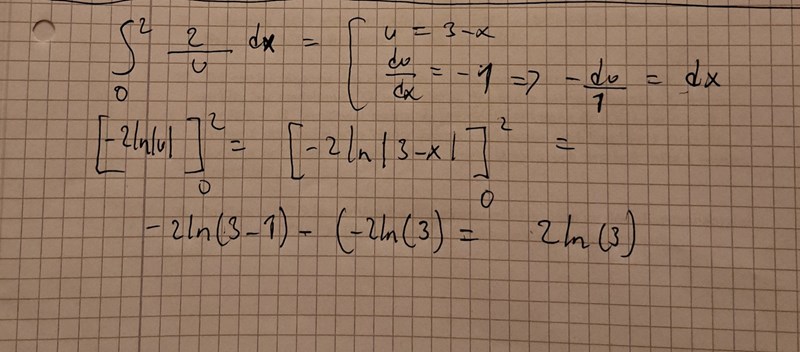 ∫₀² 2/u dx = { u = 3-x
du/dx = -1 => -du/1 = dx
[-2ln|u|]₀² = [-2ln|3-x|]₀² =
-2ln(3-1) - (-2ln(3) = 2ln(3)